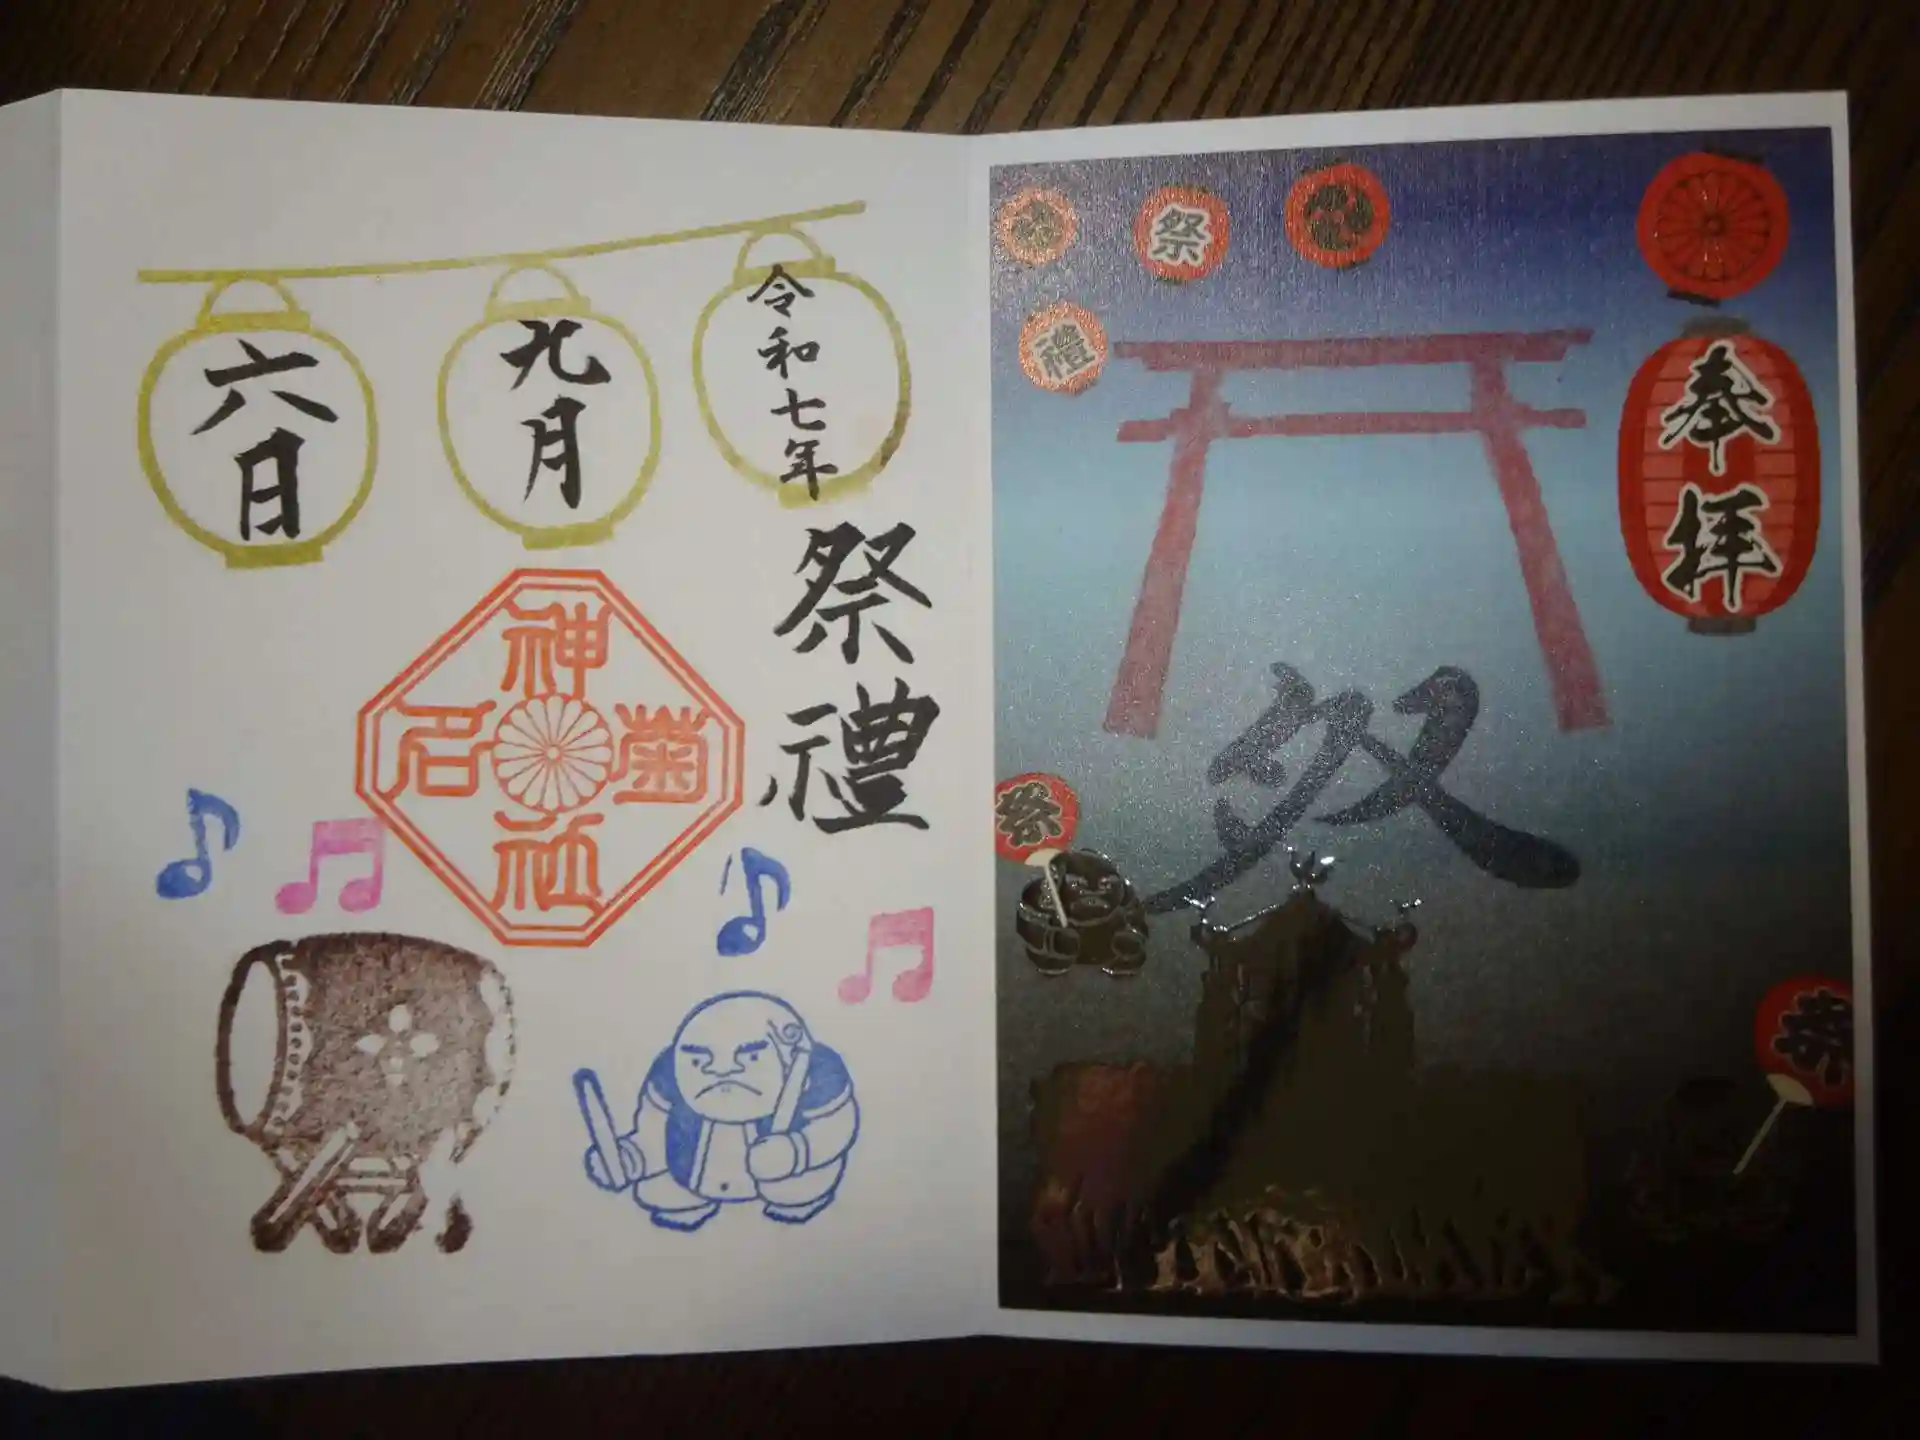 奉拝
祭
禮
祭
祭
祭
令和七年
九月
六日
祭禮
菊名神社